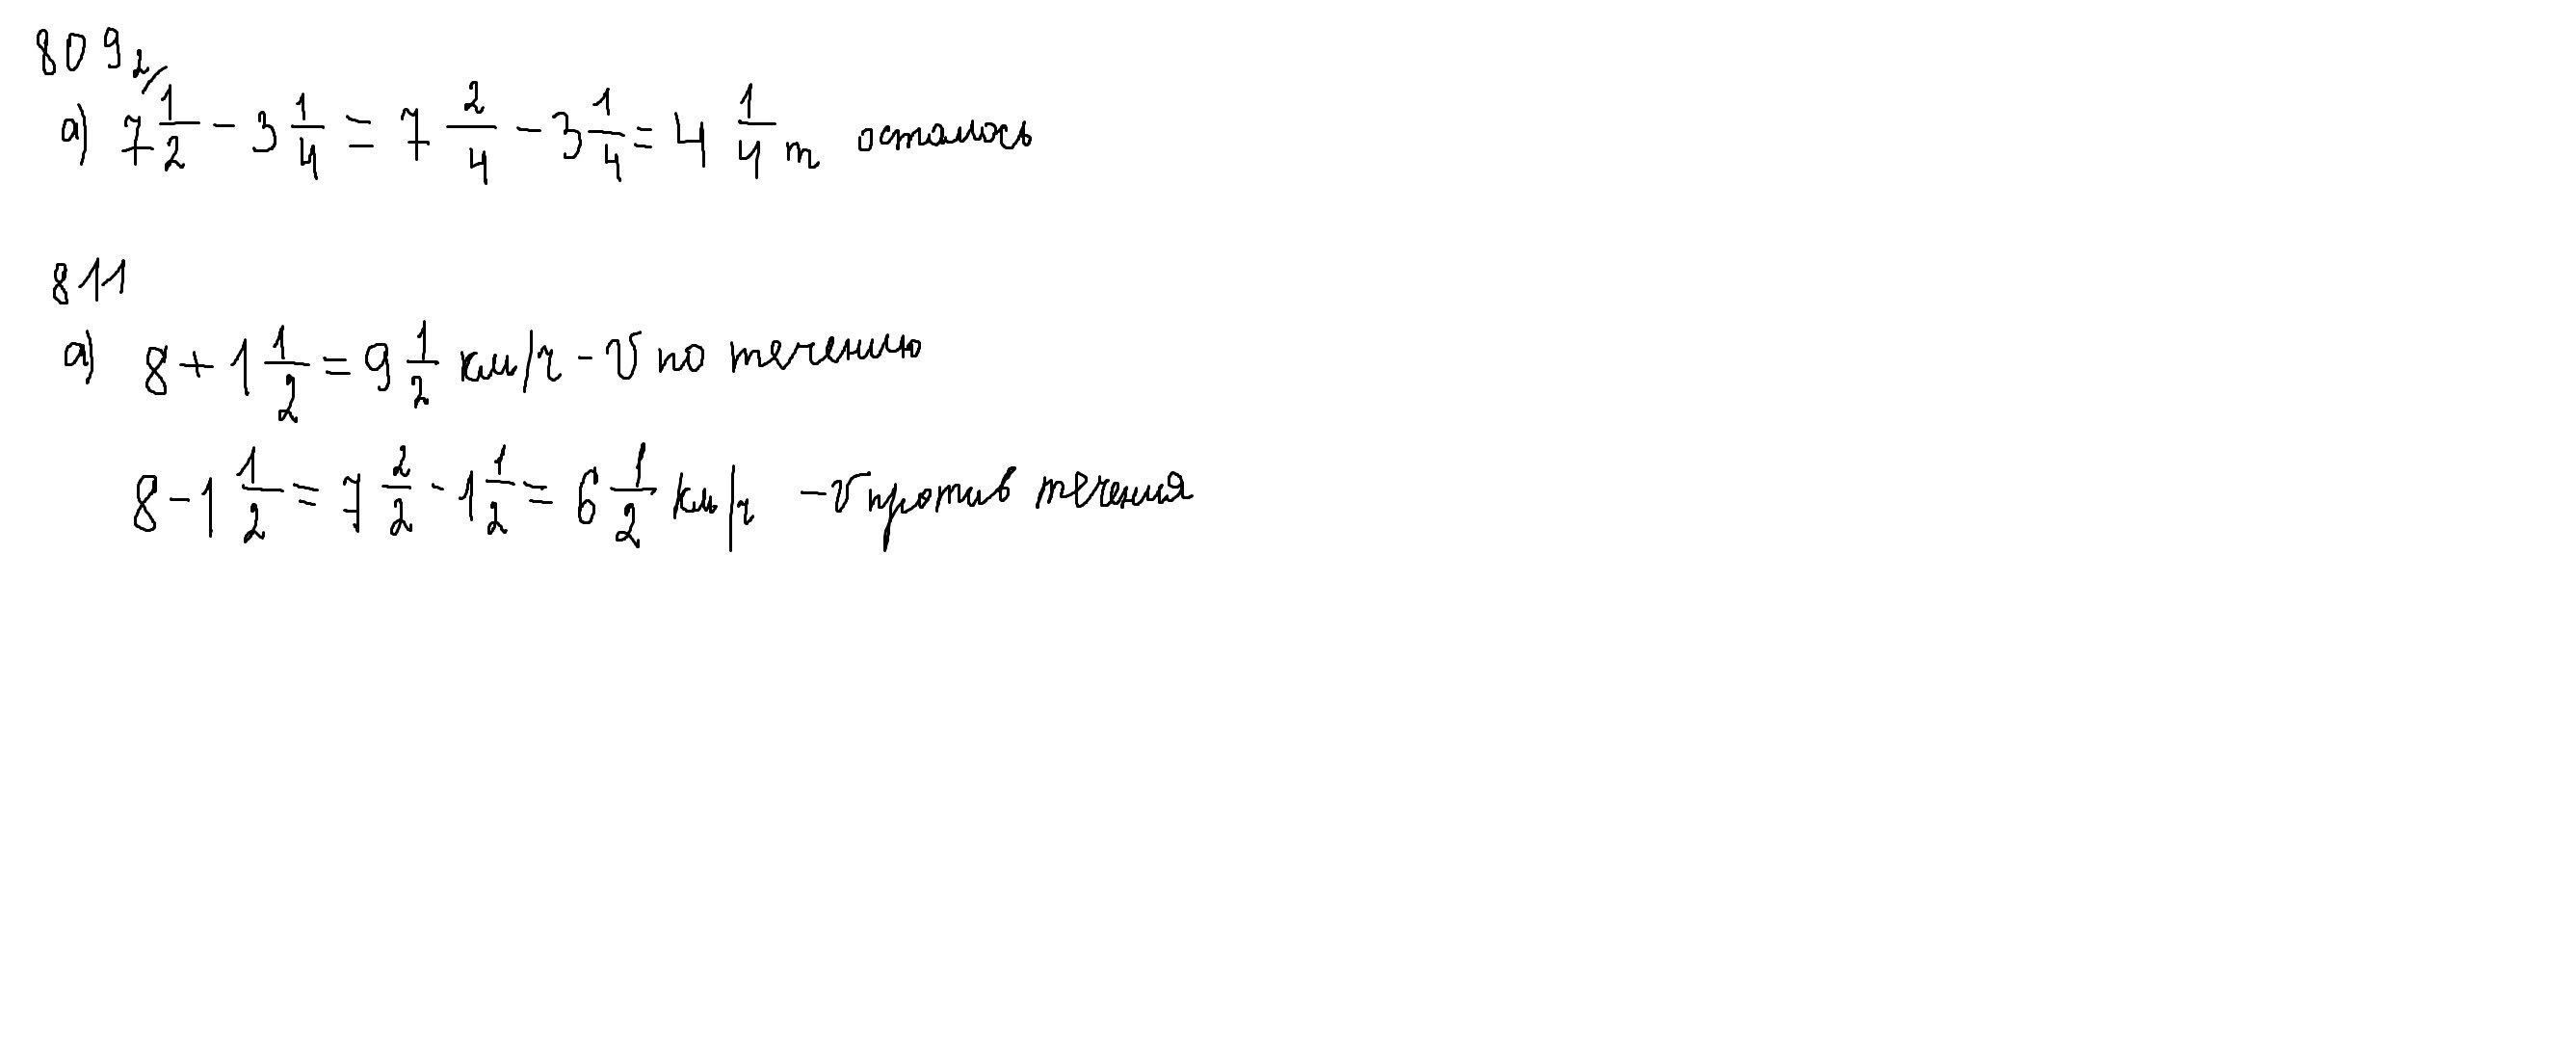 809
а) 7 1/2 (2/ − 3 1/4 = 7 2/4 − 3 1/4 = 4 1/4 т осталось
811
а) 8 + 1 1/2 = 9 1/2 км/ч − v по течению
8 − 1 1/2 = 7 2/2 − 1 1/2 = 6 1/2 км/ч − v против течения